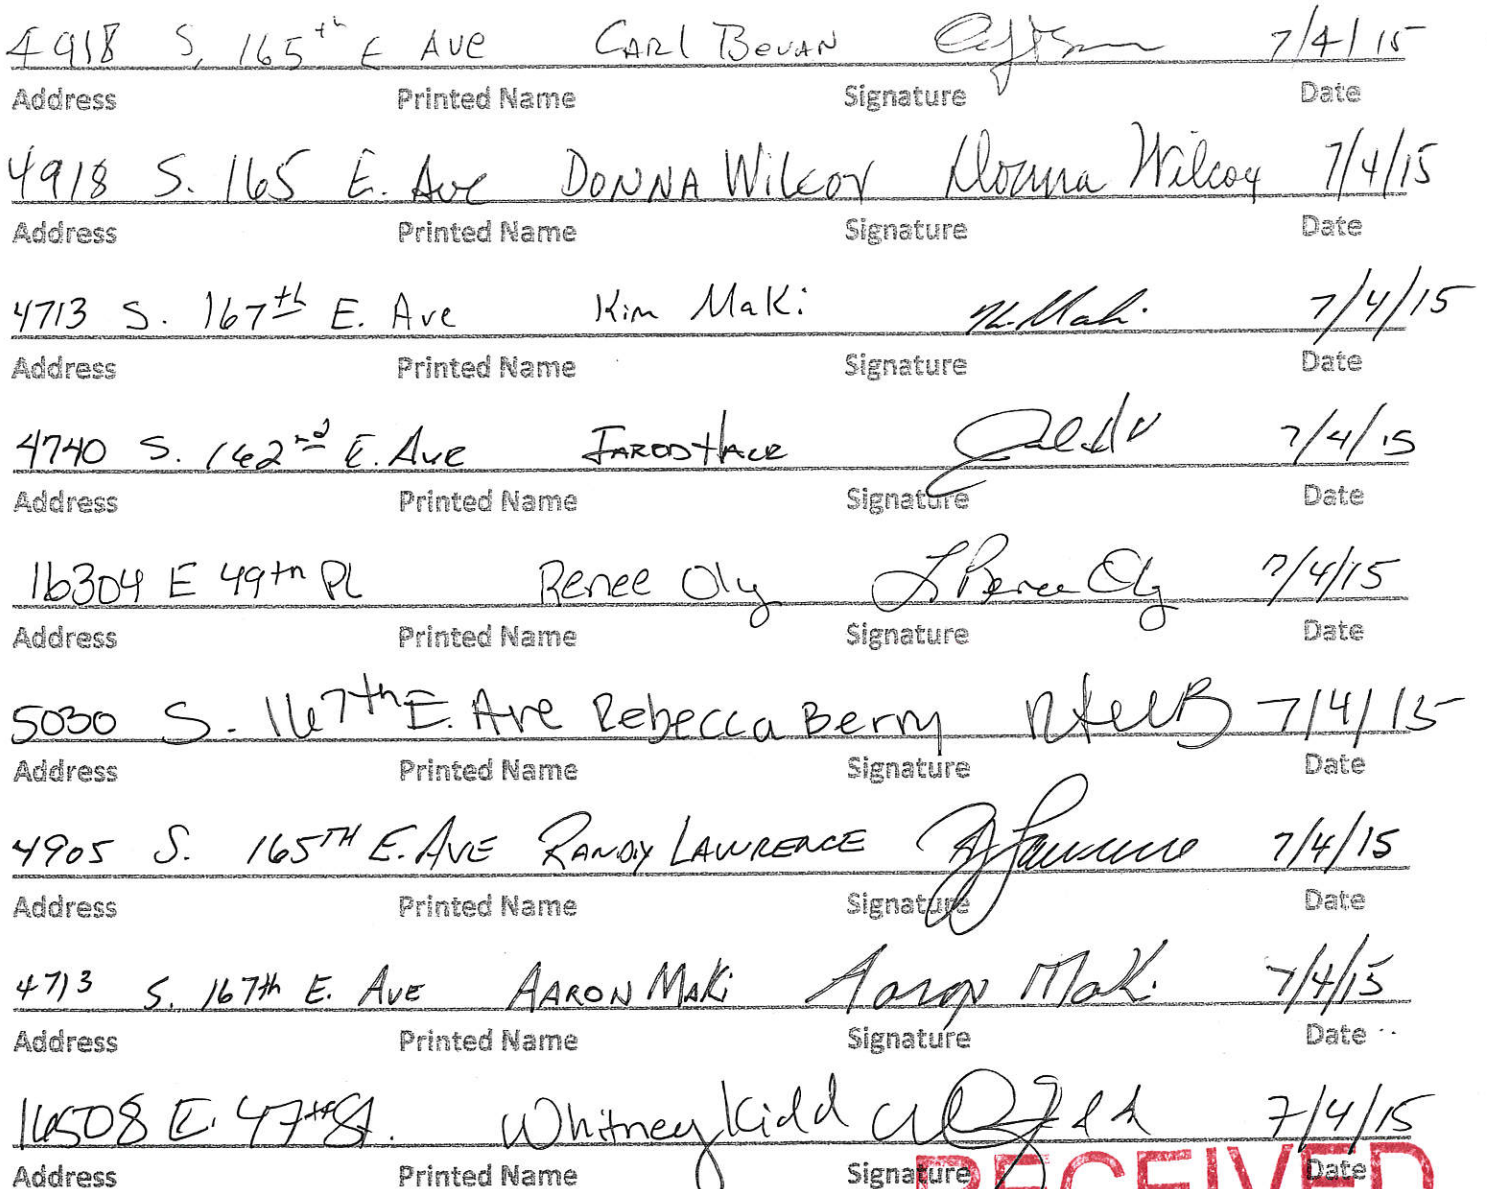 4918 S. 165th E Ave Carl Bevan 7/4/15
Address Printed Name Signature Date
4918 S. 165 E. Ave Donna Wilcox Donna Wilcox 7/4/15
Address Printed Name Signature Date
4713 S. 167th E. Ave Kim Maki K. Maki 7/4/15
Address Printed Name Signature Date
4740 S. 162nd E. Ave Jarod 7/4/15
Address Printed Name Signature Date
16304 E 49th Pl Renee Oly L Renee Oly 7/4/15
Address Printed Name Signature Date
5030 S. 167th E. Ave Rebecca Berry 7/4/15
Address Printed Name Signature Date
4905 S. 165TH E. AVE RANDY LAWRENCE Lawrence 7/4/15
Address Printed Name Signature Date
4713 S. 167th E. Ave AARON MAKi Aaron Maki 7/4/15
Address Printed Name Signature Date
16508 E. 47th St. Whitney Kidd 7/4/15
Address Printed Name Signature Date
RECEIVED